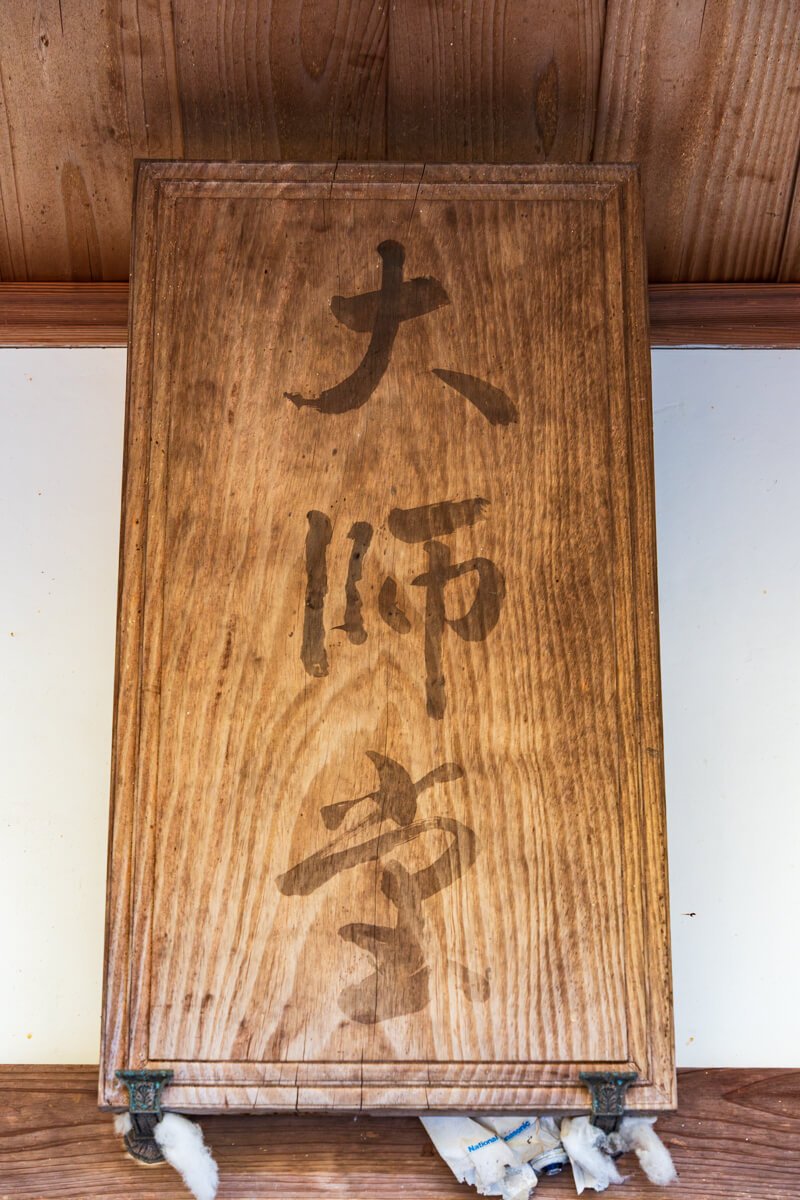 大師堂
National
Panasonic